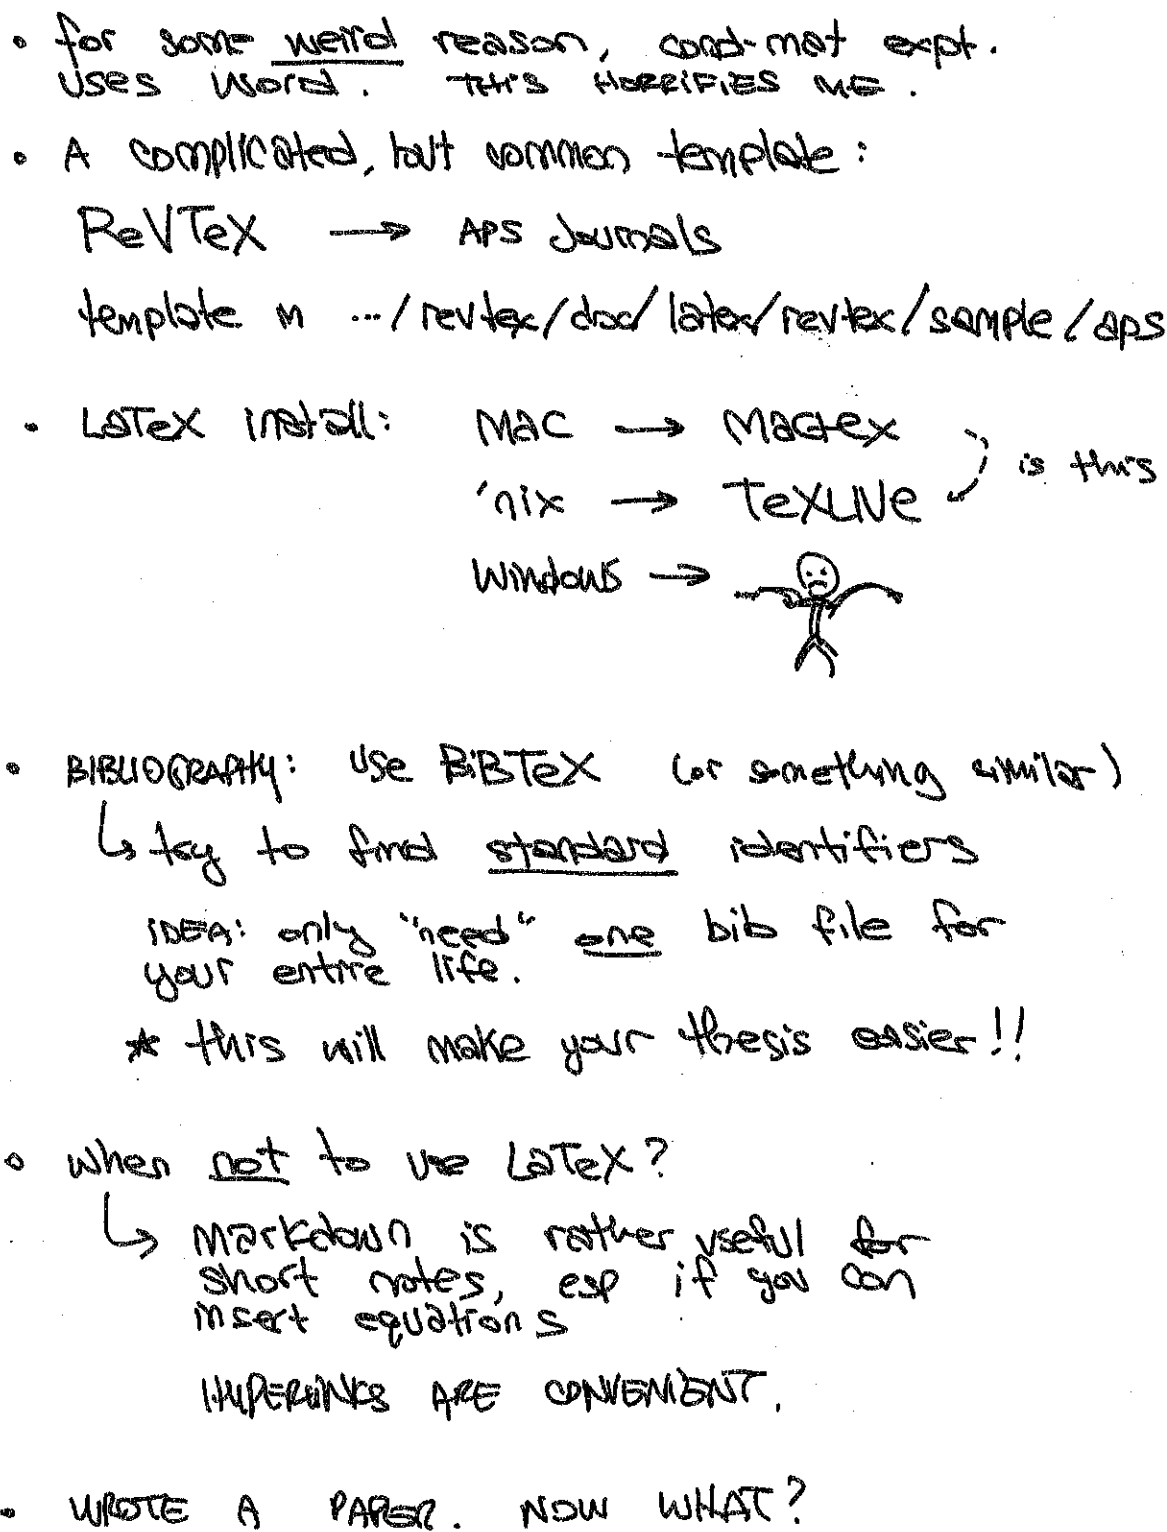 • for some weird reason, cond-mat expt.
uses Word. THIS HORRIFIES ME.
• A complicated, but common template:
ReVTeX → APS Journals
template in .../revtex/doc/latex/revtex/sample/aps
• LaTeX install: Mac → MacTex
'nix → TeXLIVe
is this
Windows →
• BIBLIOGRAPHY: Use BiBTeX (or something similar)
↳ try to find standard identifiers
IDEA: only "need" one bib file for
your entire life.
* this will make your thesis easier!!
• When not to use LaTeX?
↳ Markdown is rather useful for
short notes, esp if you can
insert equations
HYPERLINKS ARE CONVENIENT.
• WROTE A PAPER. NOW WHAT?